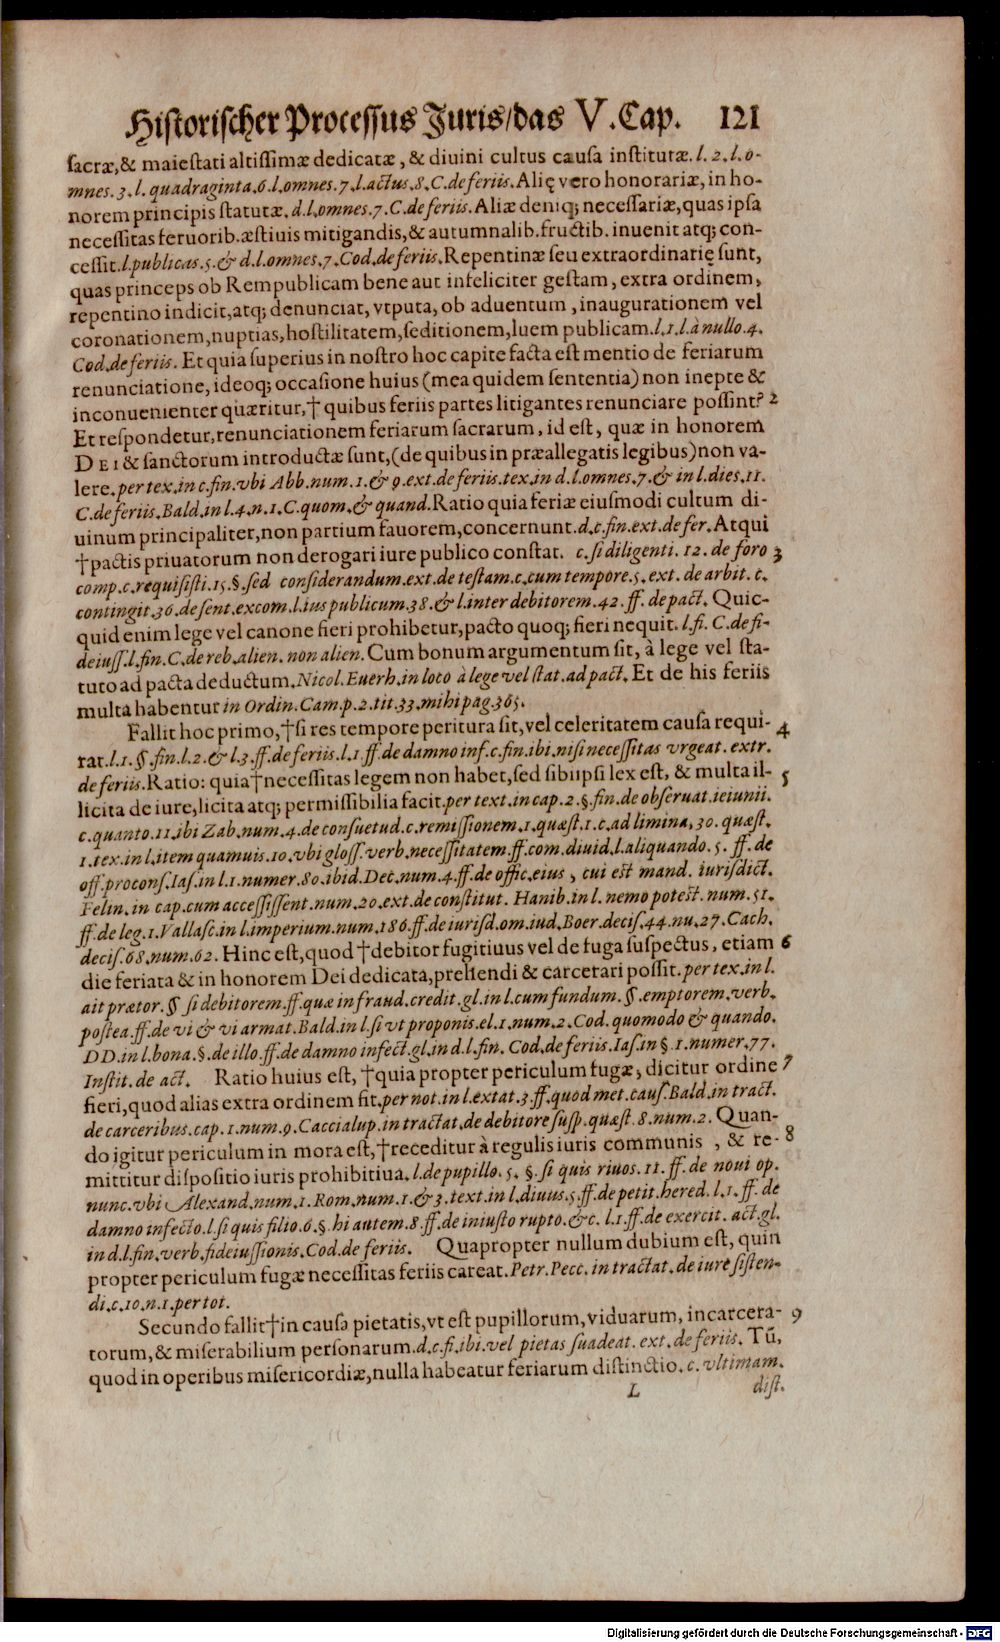 Historischer Processus Juris/das V. Cap. 121
sacræ, & maiestati altissimæ dedicatæ, & diuini cultus causa institutæ. l. 2. l. o-
mnes. 3. l. quadraginta. 6. l. omnes. 7. l. actus. 8. C. de feriis. Alię vero honorariæ, in ho-
norem principis statutæ. d. l. omnes. 7. C. de feriis. Aliæ deniq; necessariæ, quas ipsa
necessitas feruorib. æstiuis mitigandis, & autumnalib. fructib. inuenit atq; con-
cessit. l. publicas. 5. & d. l. omnes. 7. Cod. de feriis. Repentinæ seu extraordinarię sunt,
quas princeps ob Rempublicam bene aut infeliciter gestam, extra ordinem,
repentino indicit, atq; denunciat, vtputa, ob aduentum, inaugurationem vel
coronationem, nuptias, hostilitatem, seditionem, luem publicam. l. 1. l. à nullo. 4.
Cod. de feriis. Et quia superius in nostro hoc capite facta est mentio de feriarum
renunciatione, ideoq; occasione huius (mea quidem sententia) non inepte &
inconuenienter quæritur, † quibus feriis partes litigantes renunciare possint? 2
Et respondetur, renunciationem feriarum sacrarum, id est, quæ in honorem
DEI & sanctorum introductæ sunt, (de quibus in præallegatis legibus) non va-
lere. per tex. in c. fin. vbi Abb. num. 1. & 9. ext. de feriis. tex. in d. l. omnes. 7. & in l. dies. 11.
C. de feriis. Bald. in l. 4. n. 1. C. quom. & quand. Ratio quia feriæ eiusmodi cultum di-
uinum principaliter, non partium fauorem, concernunt. d. c. fin. ext. de fer. Atqui
† pactis priuatorum non derogari iure publico constat. c. si diligenti. 12. de foro 3
comp. c. requisisti. 15. §. sed considerandum. ext. de testam. c. cum tempore. 5. ext. de arbit. c.
contingit. 36. de sent. excom. l. ius publicum. 38. & l. inter debitorem. 42. ff. de pact. Quic-
quid enim lege vel canone fieri prohibetur, pacto quoq; fieri nequit. l. fi. C. de fi-
deiuss. l. fin. C. de reb. alien. non alien. Cum bonum argumentum sit, à lege vel sta-
tuto ad pacta deductum. Nicol. Euerh. in loco à lege vel stat. ad pact. Et de his feriis
multa habentur in Ordin. Cam. p. 2. tit. 33. mihi pag. 365.
Fallit hoc primo, † si res tempore peritura sit, vel celeritatem causa requi- 4
rat. l. 1. §. fin. l. 2. & l. 3. ff. de feriis. l. 1 ff. de damno inf. c. fin. ibi. nisi necessitas vrgeat. extr.
de feriis. Ratio: quia † necessitas legem non habet, sed sibi ipsi lex est, & multa il- 5
licita de iure, licita atq; permissibilia facit. per text. in cap. 2. §. fin. de obseruat. ieiunii.
c. quanto. 11. ibi Zab. num. 4. de consuetud. c. remissionem. 1. quæst. 1. c. ad limina, 30. quæst.
1. tex. in l. item quamuis. 10. vbi gloss. verb. necessitatem. ff. com. diuid. l. aliquando. 5. ff. de
off. procons. Ias. in l. 1. numer. 80. ibid. Dec. num. 4. ff. de offic. eius, cui est mand. iurisdict.
Felin. in cap. cum accessissent. num. 20. ext. de constitut. Hanib. in l. nemo potest. num. 51.
ff. de leg. 1. Vallasc. in l. imperium. num. 186. ff. de iurisd. om. iud. Boer. decis. 44. nu. 27. Cach.
decis. 68. num. 62. Hinc est, quod † debitor fugitiuus vel de fuga suspectus, etiam 6
die feriata & in honorem Dei dedicata, prehendi & carcerari possit. per tex. in l.
ait prætor. § si debitorem. ff. quæ in fraud. credit. gl. in l. cum fundum. §. emptorem. verb.
postea. ff. de vi & vi armat. Bald. in l. si vt proponis. el. 1. num. 2. Cod. quomodo & quando.
DD. in l. bona. §. de illo. ff. de damno infect. gl. in d. l. fin. Cod. de feriis. Ias. in §. 1. numer. 77.
Instit. de act. Ratio huius est, † quia propter periculum fugæ, dicitur ordine 7
fieri, quod alias extra ordinem fit. per not. in l. extat. 3. ff. quod met. caus. Bald. in tract.
de carceribus. cap. 1. num. 9. Caccialup. in tractat. de debitore susp. quæst. 8. num. 2. Quan-
do igitur periculum in mora est, † receditur à regulis iuris communis, & re- 8
mittitur dispositio iuris prohibitiua. l. de pupillo. 5. §. si quis riuos. 11. ff. de noui op.
nunc. vbi Alexand. num. 1. Rom. num. 1. & 3. text. in l. diuus. 5. ff. de petit. hered. l. 1. ff. de
damno infecto. l. si quis filio. 6. §. hi autem. 8. ff. de iniusto rupto. &c. l. 1 ff. de exercit. act. gl.
in d. l. fin. verb. fideiussionis. Cod. de feriis. Quapropter nullum dubium est, quin
propter periculum fugæ necessitas feriis careat. Petr. Pecc. in tractat. de iure sisten-
di. c. 10. n. 1. per tot.
Secundo fallit † in causa pietatis, vt est pupillorum, viduarum, incarcera- 9
torum, & miserabilium personarum. d. c. fi. ibi. vel pietas suadeat. ext. de feriis. Tũ,
quod in operibus misericordiæ, nulla habeatur feriarum distinctio. c. vltimam.
L dist.
Digitalisierung gefördert durch die Deutsche Forschungsgemeinschaft - DFG